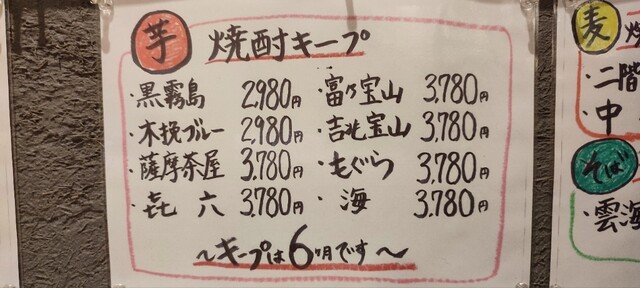 芋 焼酎キープ
・黒霧島 2,980円 ・富乃宝山 3,780円
・木挽ブルー 2,980円 ・吉兆宝山 3,780円
・薩摩茶屋 3,780円 ・もぐら 3,780円
・㐂六 3,780円 ・海 3,780円
〜キープは6ヶ月です〜
麦
・二階
・中
そば
・雲海